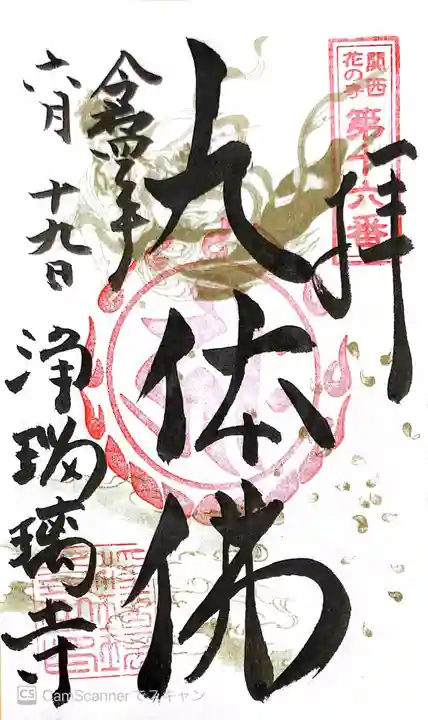 関西
花の寺
第十六番
拝
九体佛
令和四年
六月十九日
浄瑠璃寺
CS CamScannerでスキャン